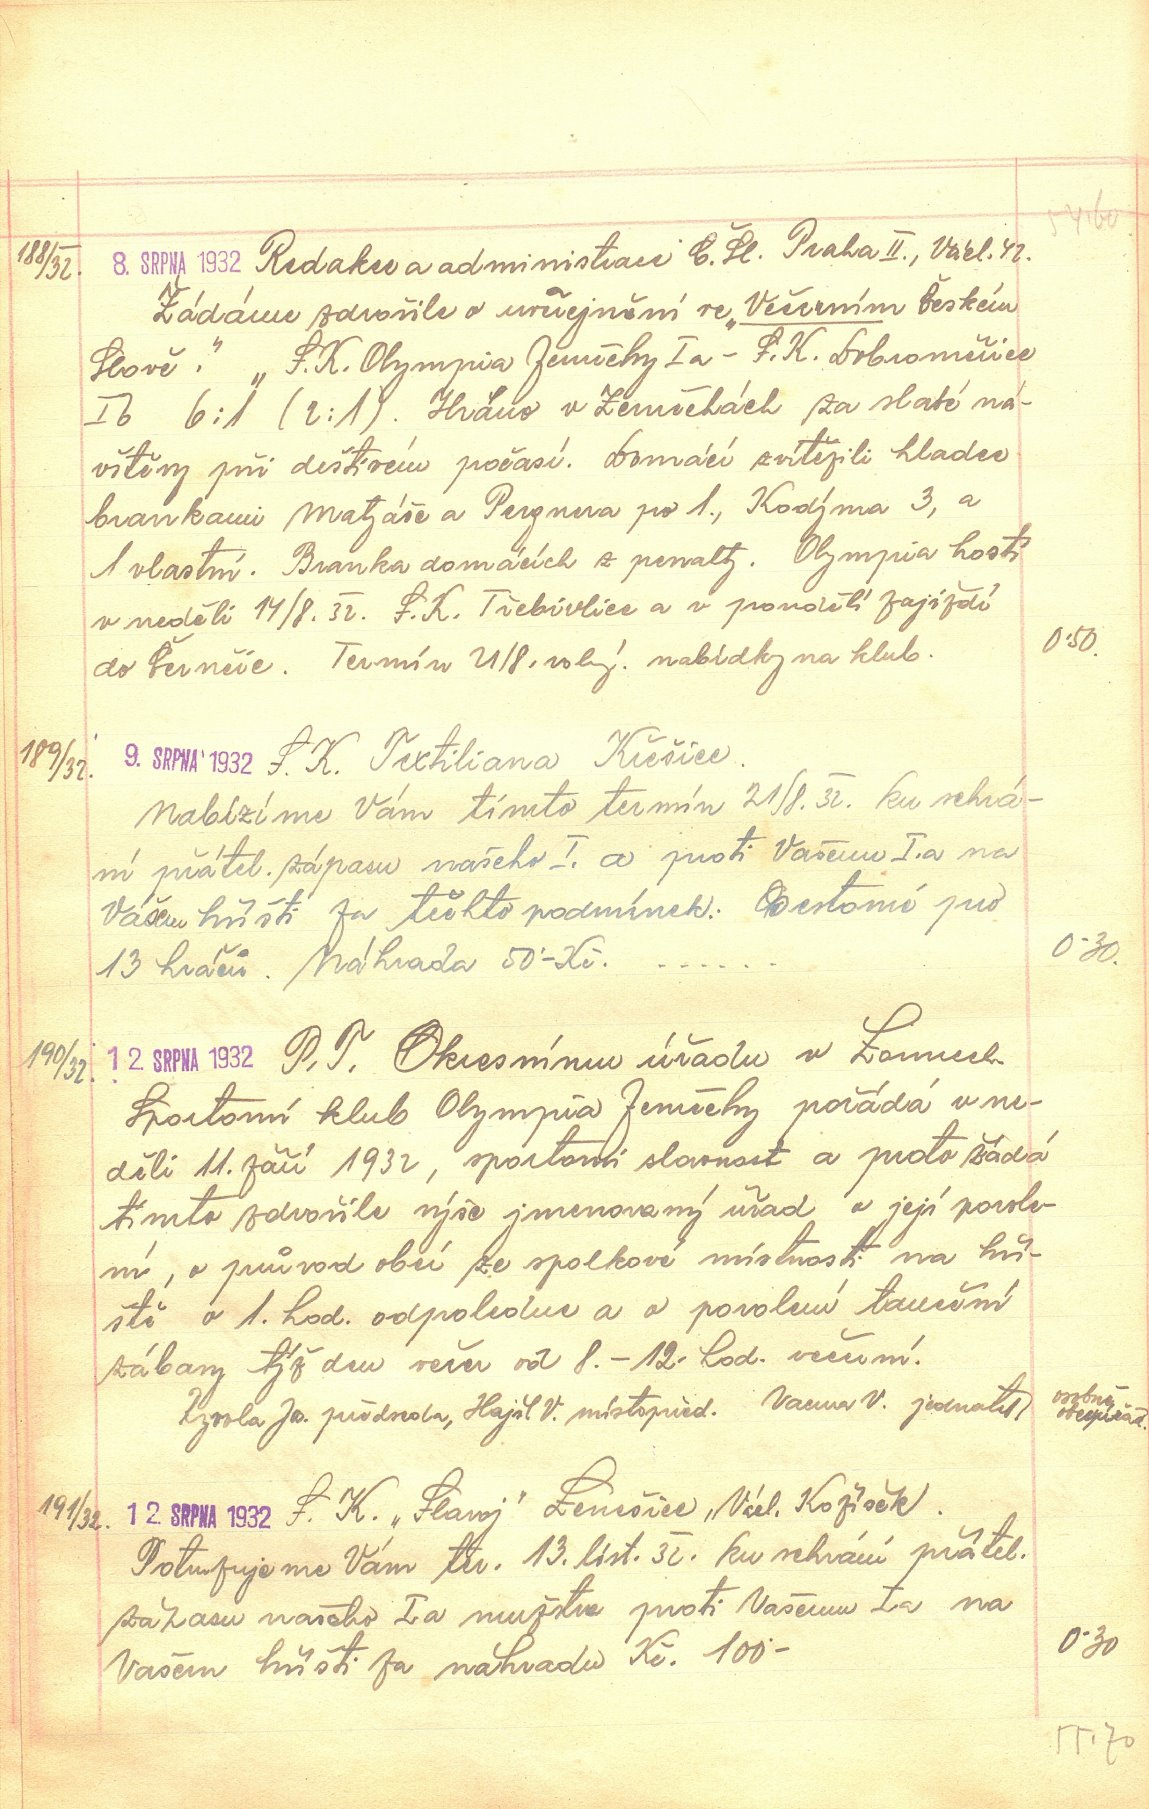 54·60
188/32. 8. SRPNA 1932 Redakce a administraci Č. Sl. Praha II., Václ. 42.
Žádáme zdvořile o uveřejnění ve „Večerním Českém
Slově." „S.K. Olympia Zeměchy Ia - S.K. Dobroměřice
Ib 6:1 (2:1). Hráno v Zeměchách za slabé ná-
vštěvy při deštivém počasí. Domácí zvítězili hladce
brankami Matyáše a Pergnera po 1., Kodýma 3, a
1 vlastní. Branka domácích z penalty. Olympia hostí
v neděli 14/8. 32. S.K. Třebívlice a v pondělí zajíždí
do Černčic. Termín 21/8. volný. nabídky na klub. 0·50.
189/32. 9. SRPNA 1932 S.K. Textiliana Křešice.
Nabízíme Vám tímto termín 21/8. 32. ku sehrá-
ní přátel. zápasu našeho I. a proti Vašemu I.a na
Vašem hřišti za těchto podmínek: Cestovné pro
13 hráčů. Náhrada 50·-Kč. ...... 0·30.
190/32. 12. SRPNA 1932 P.T. Okresnímu úřadu v Lounech
Sportovní klub Olympia Zeměchy pořádá v ne-
děli 11. září 1932, sportovní slavnost a proto žádá
tímto zdvořile výše jmenovaný úřad o její povole-
ní, o průvod obcí ze spolkové místnosti na hři-
ště o 1. hod. odpoledne a o povolení taneční
zábavy týž den večer od 8. - 12. hod. večerní.
Jo. předseda, Hajšl V. místopřed. V. jednatel osobně
191/32. 12. SRPNA 1932 S.K. „Slavoj" Lenešice „Václ. Kožíšek.
Potvrzujeme Vám ter. 13. list. 32. ku sehrání přátel.
zápasu našeho Ia mužstva proti Vašemu Ia na
Vašem hřišti za náhradu Kč. 100·- 0·30
55·70